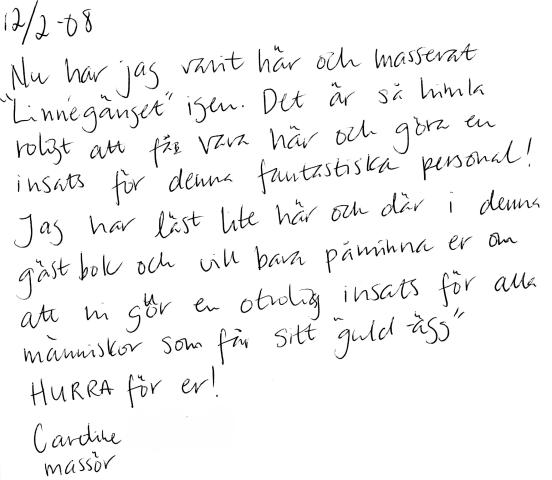 12/2-08
Nu har jag varit här och masserat
"Linnégänget" igen. Det är så himla
roligt att få vara här och göra en
insats för denna fantastiska personal!
Jag har läst lite här och där i denna
gästbok och vill bara påminna er om
att ni gör en otrolig insats för alla
människor som får sitt "guld-ägg"
HURRA för er!
Caroline
massör